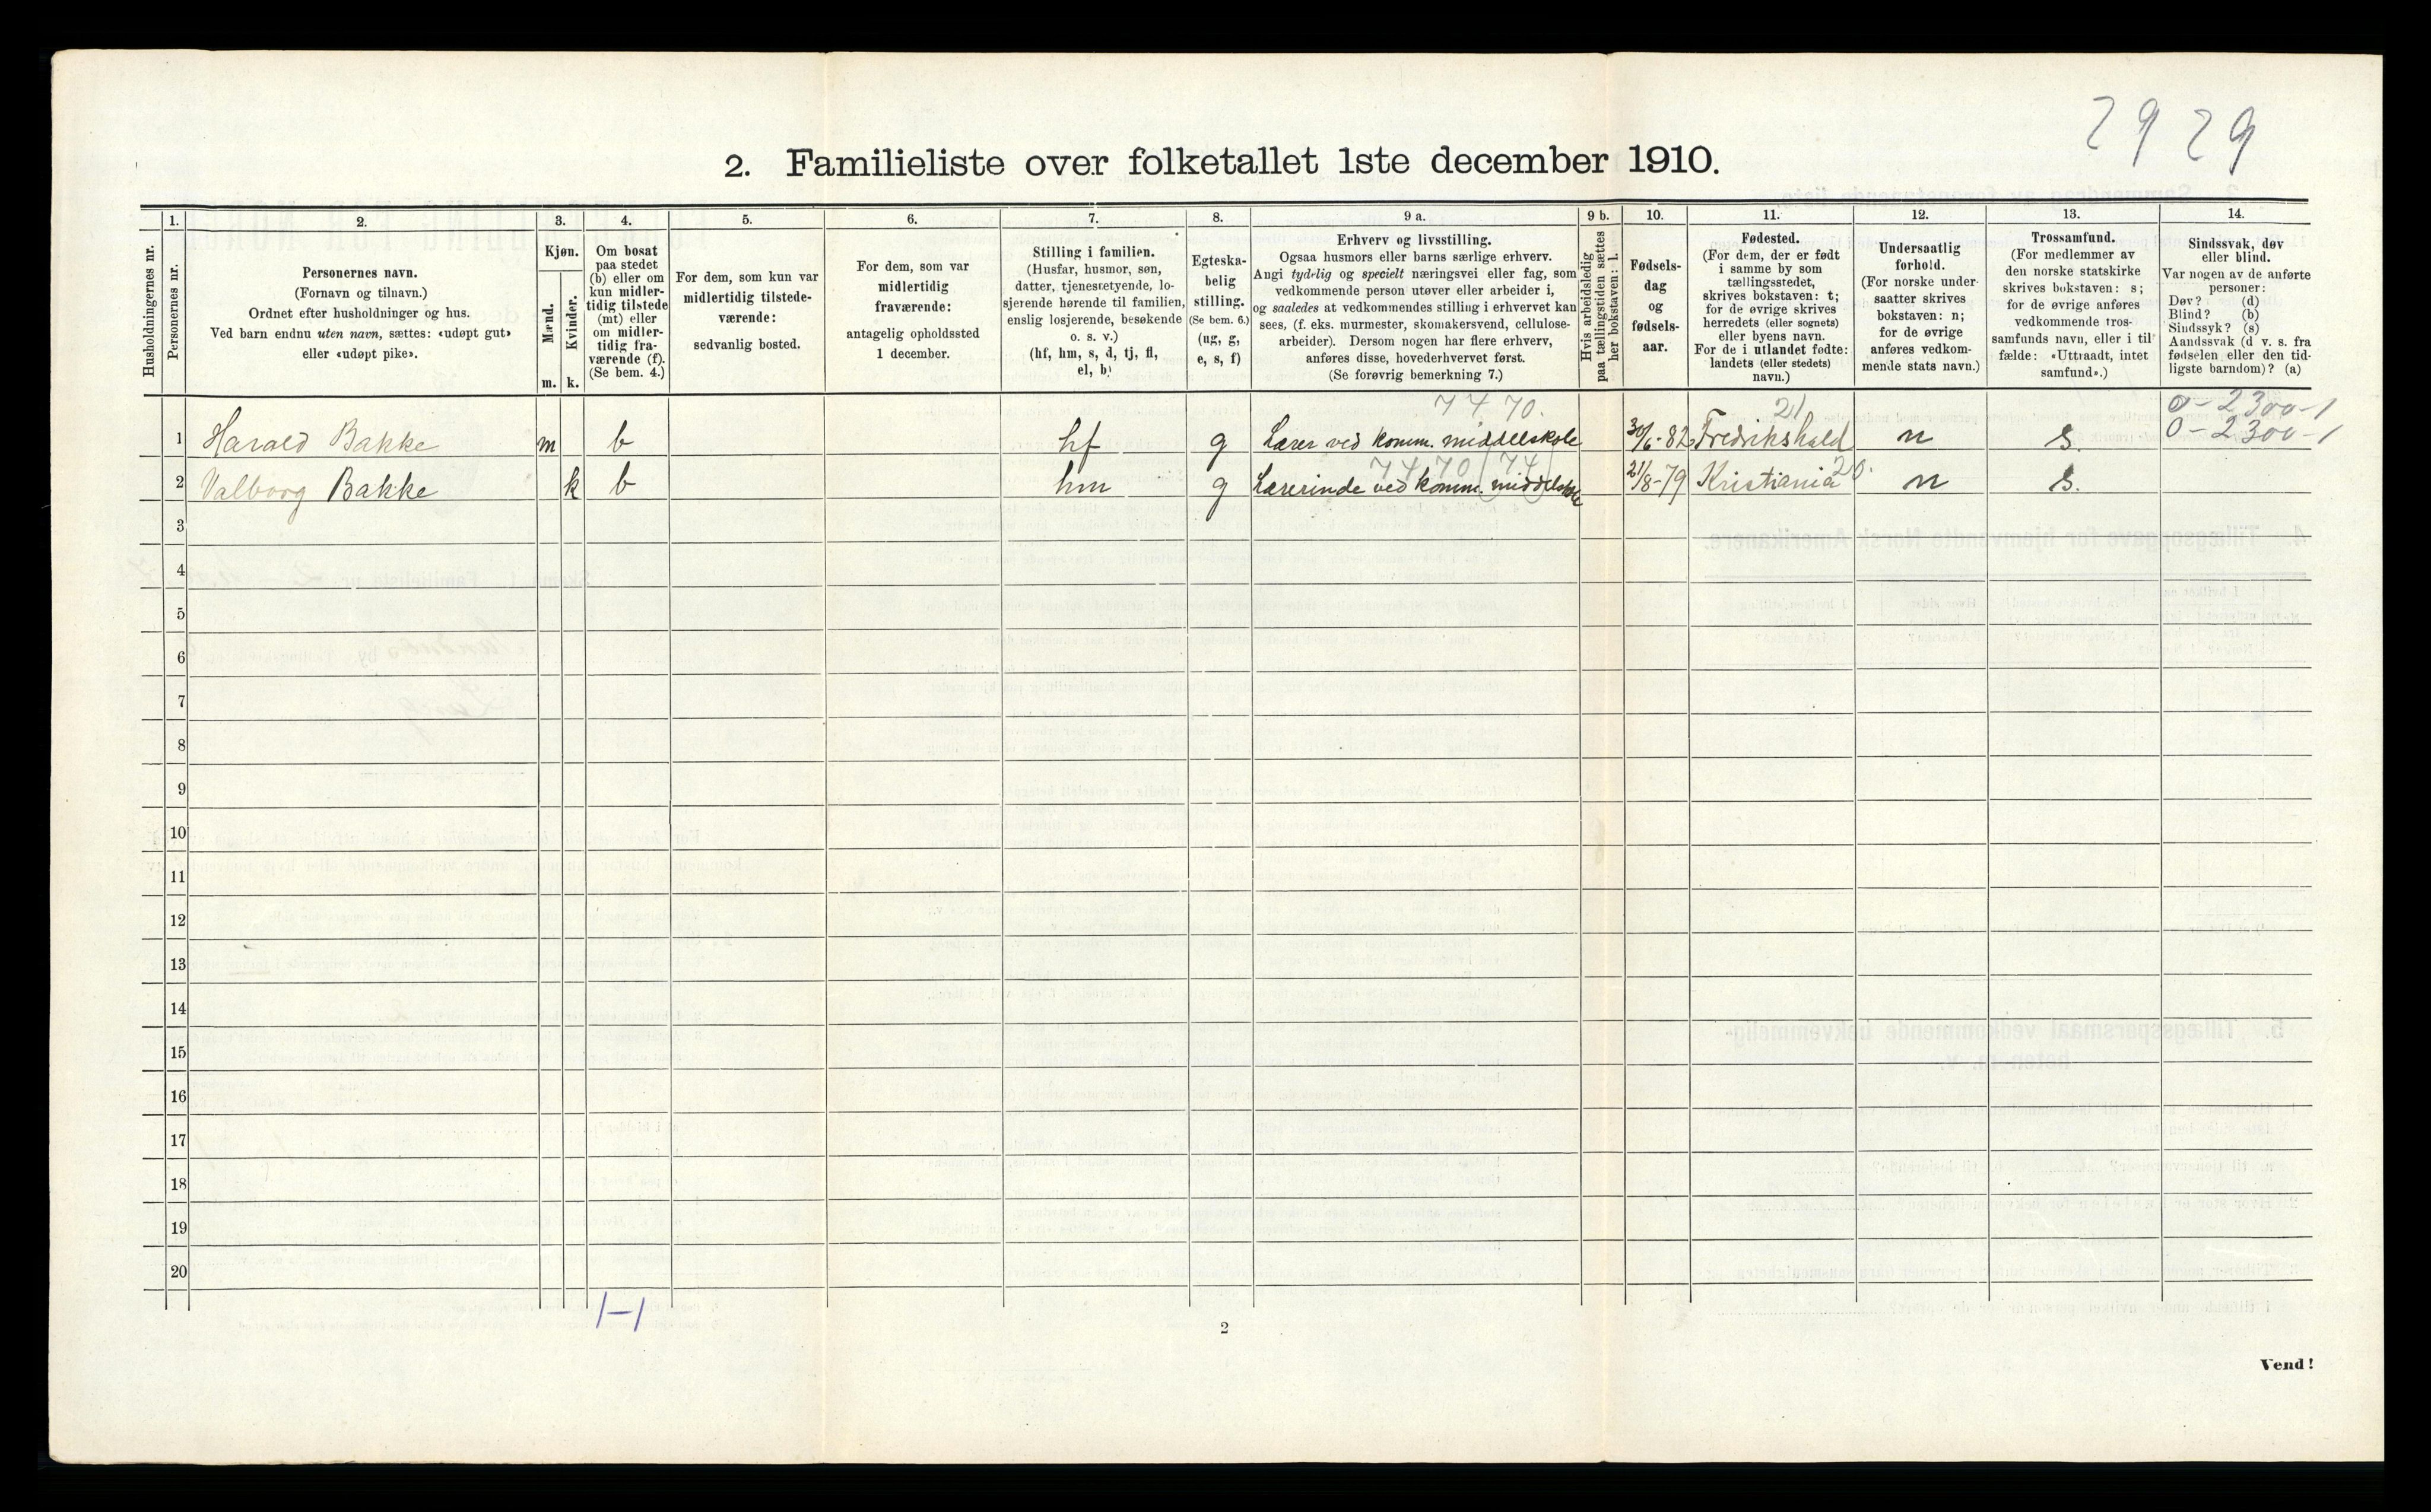 2929
2. Familieliste over folketallet 1ste december 1910.
Husholdningernes nr.
1.
Personernes nr.
2.
Personernes navn.
(Fornavn og tilnavn.)
Ordnet efter husholdninger og hus.
Ved barn endnu uten navn, sættes: «udøpt gut»
eller «udøpt pike».
3.
Kjøn.
Mænd.
Kvinder.
m. k.
4.
Om bosat
paa stedet
(b) eller om
kun midler-
tidig tilstede
(mt) eller
om midler-
tidig fra-
værende (f).
(Se bem. 4.)
5.
For dem, som kun var
midlertidig tilstede-
værende:
sedvanlig bosted.
6.
For dem, som var
midlertidig
fraværende:
antagelig opholdssted
1 december.
7.
Stilling i familien.
(Husfar, husmor, søn,
datter, tjenestetyende, lo-
sjerende hørende til familien,
enslig losjerende, besøkende
o. s. v.)
(hf, hm, s, d, tj, fl,
el, b)
8.
Egteska-
belig
stilling.
(Se bem. 6.)
(ug, g,
e, s, f)
9 a.
Erhverv og livsstilling.
Ogsaa husmors eller barns særlige erhverv.
Angi tydelig og specielt næringsvei eller fag, som
vedkommende person utøver eller arbeider i,
og saaledes at vedkommendes stilling i erhvervet kan
sees, (f. eks. murmester, skomakersvend, cellulose-
arbeider). Dersom nogen har flere erhverv,
anføres disse, hovederhvervet først.
(Se forøvrig bemerkning 7.)
9 b.
Hvis arbeidsledig
paa tællingstiden sættes
her bokstaven: l.
10.
Fødsels-
dag
og
fødsels-
aar.
11.
Fødested.
(For dem, der er født
i samme by som
tællingsstedet,
skrives bokstaven: t;
for de øvrige skrives
herredets (eller sognets)
eller byens navn.
For de i utlandet fødte:
landets (eller stedets)
navn.)
12.
Undersaatlig
forhold.
(For norske under-
saatter skrives
bokstaven: n;
for de øvrige
anføres vedkom-
mende stats navn.)
13.
Trossamfund.
(For medlemmer av
den norske statskirke
skrives bokstaven: s;
for de øvrige anføres
vedkommende tros-
samfunds navn, eller i til-
fælde: «Uttraadt, intet
samfund».)
14.
Sindssvak, døv
eller blind.
Var nogen av de anførte
personer:
Døv? (d)
Blind? (b)
Sindssyk? (s)
Aandssvak (d v. s. fra
fødselen eller den tid-
ligste barndom)? (a)
7470. 21 0-2300-1
0-2300-1
1 Harald Bakke m b hf g Lærer ved komm. middelskole 30/6-82 Fredrikshald n s.
7470 (74) 20.
2 Valborg Bakke k b hm g Lærerinde ved komm. middelskole 21/8-79 Kristiania n s.
3
4
5
6
7
8
9
10
11
12
13
14
15
16
17
18
19
20
1-1
2
Vend!